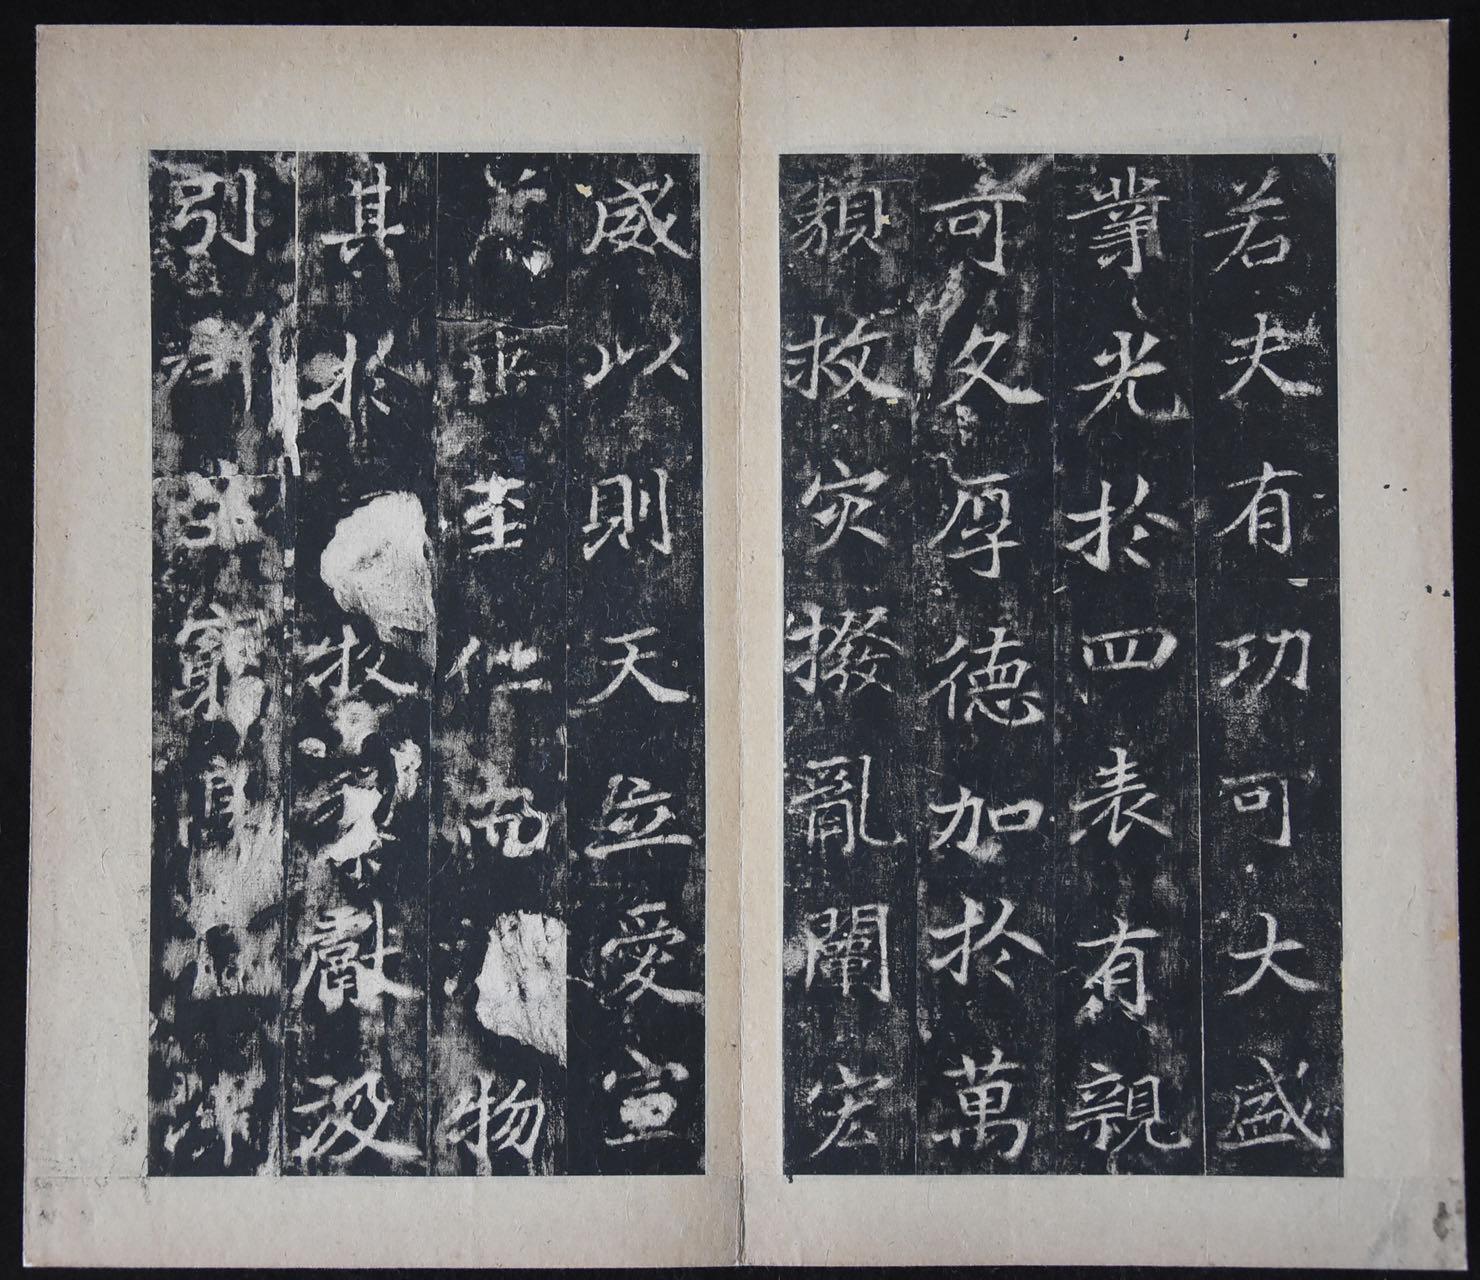 若夫有功可大盛
業光於四表有親
可久厚德加於萬
類救灾撥亂闡宏
威以則天立愛宣
慈垂至仁而物
其於救獻汲
引窮自